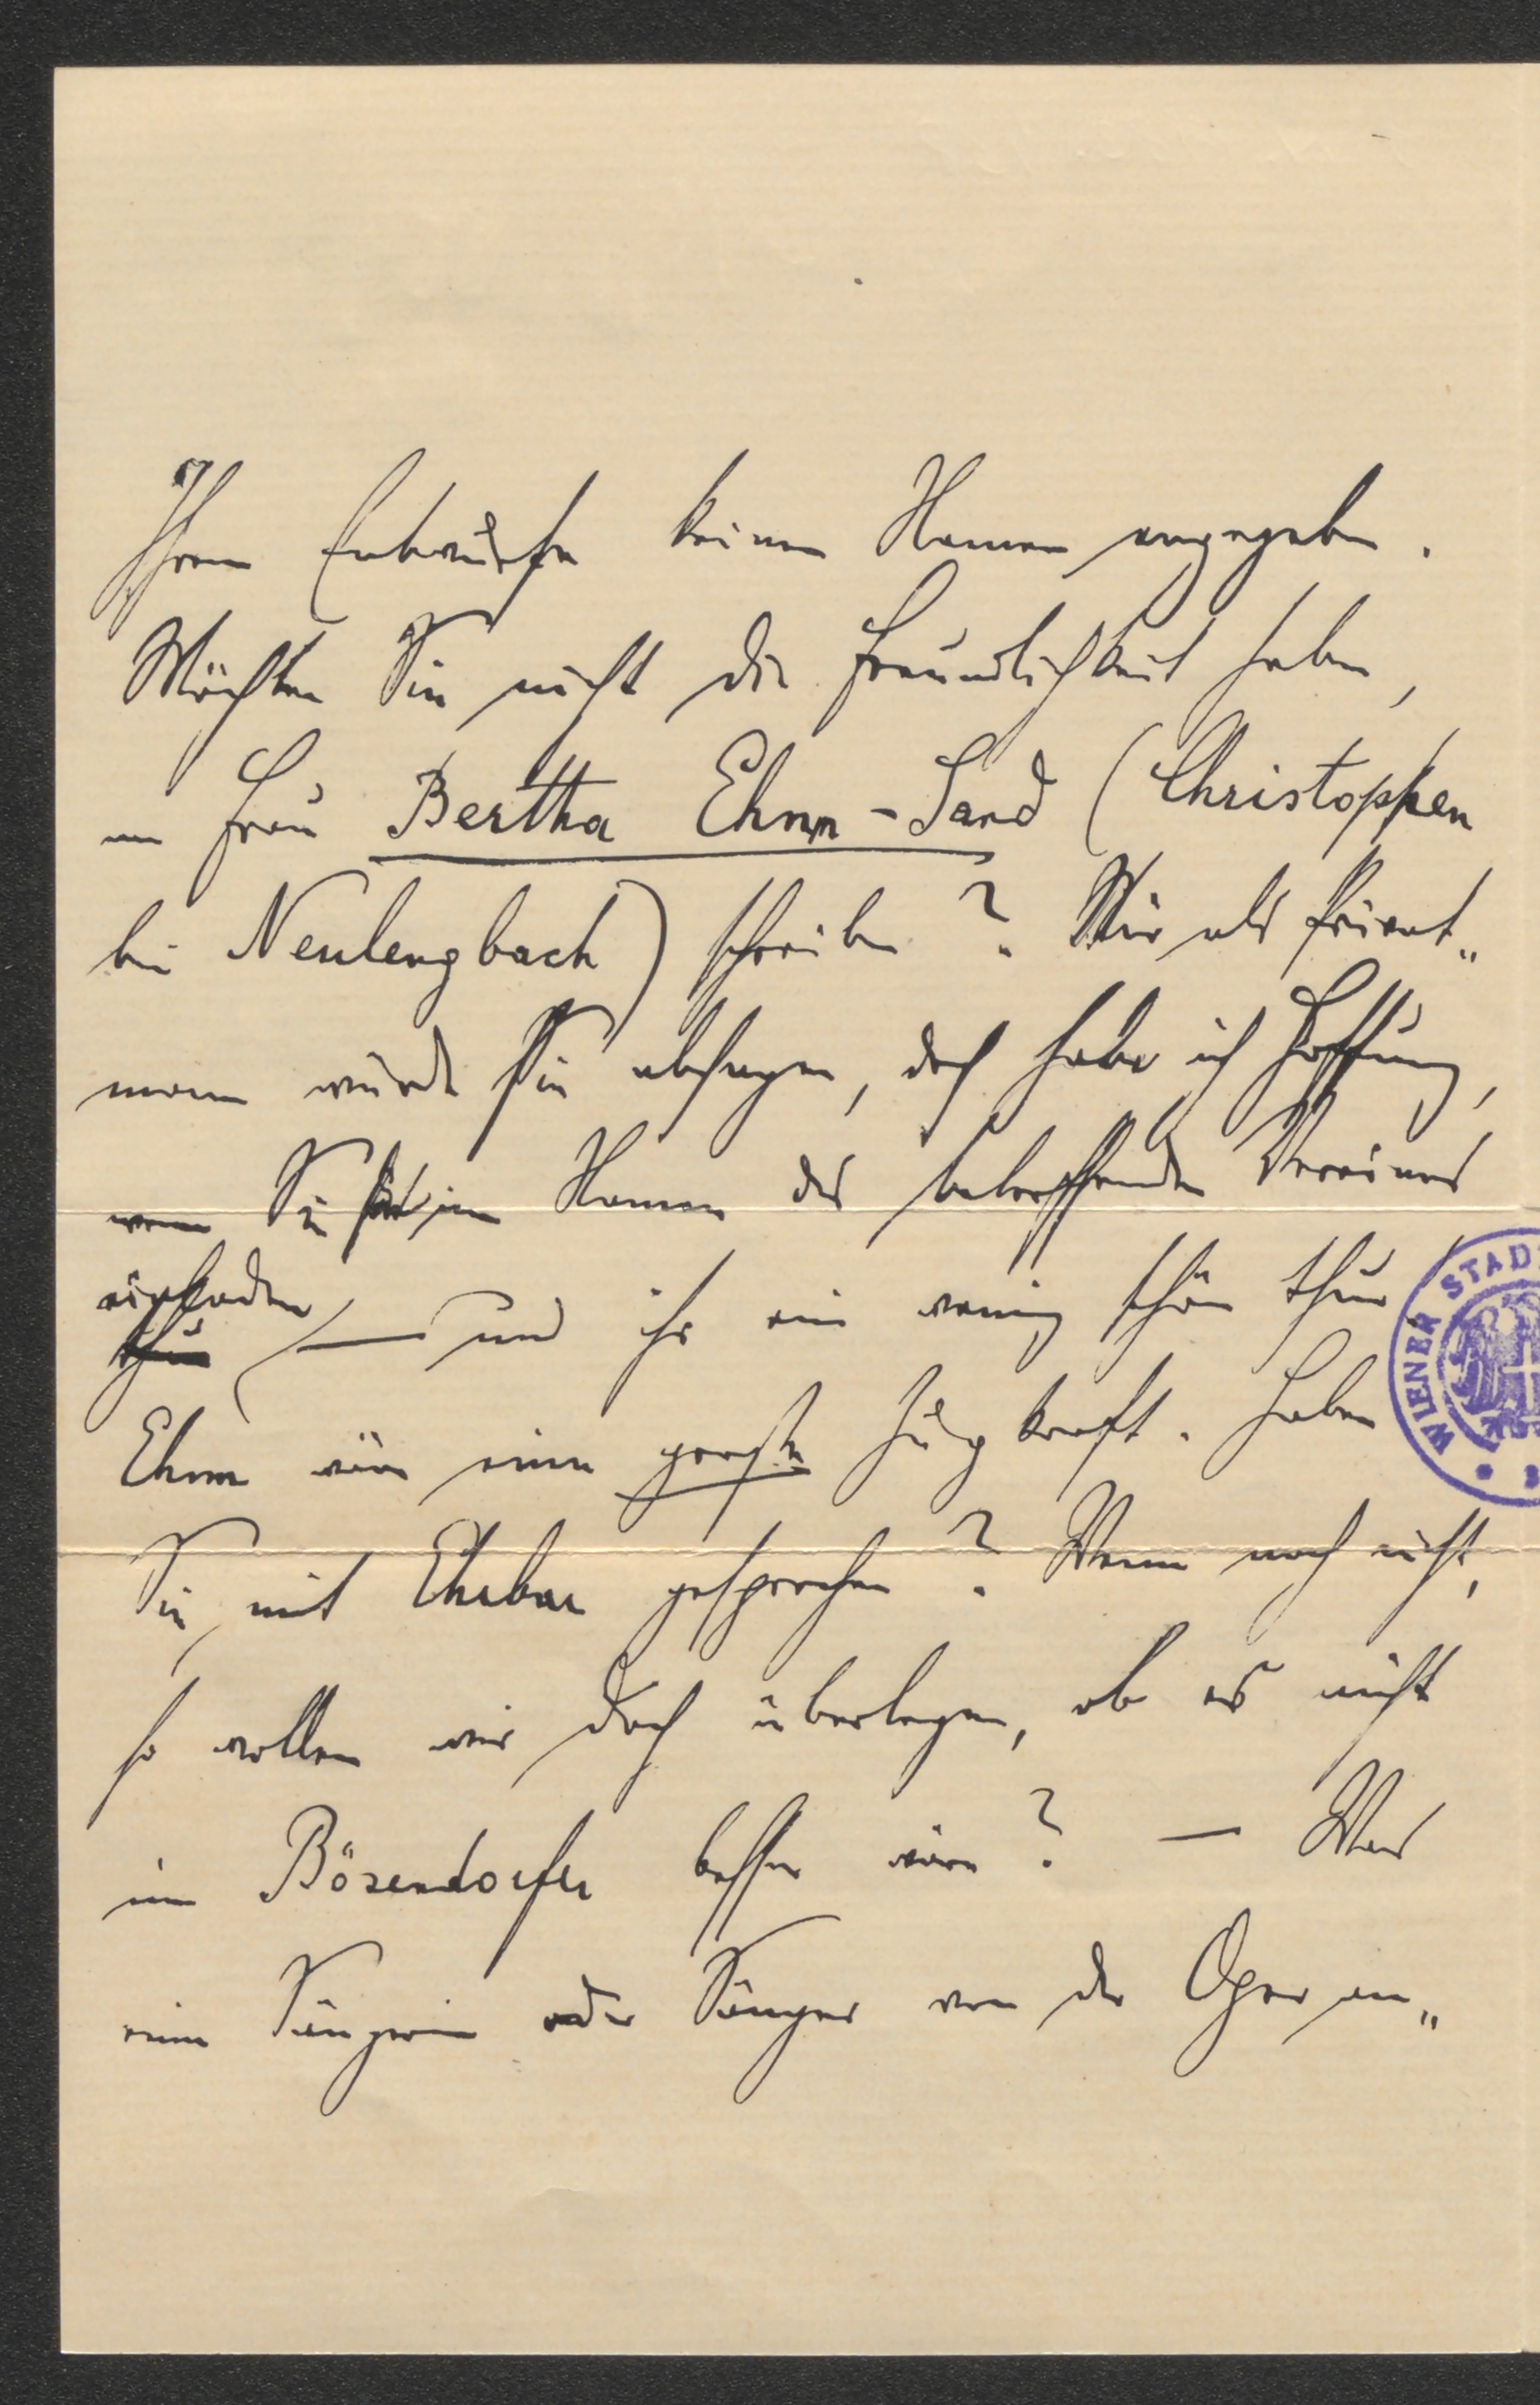 Ihrem Entwurfe keinen Namen angegeben.
Möchten Sie nicht die Freundlichkeit haben,
an Frau Bertha Ehnn-Sand (Christophen
bei Neulengbach) schreiben? Mir als Privat„
mann würde sie absagen, doch habe ich Hoffnung,
wenn Sie im Namen des betreffenden Vereines
einladen
thun — und ihr ein wenig schön thun
Ehnn wäre eine große Zugkraft. Haben
Sie mit Ehrbar gesprochen? Wenn noch nicht,
so wollen wir doch überlegen, ob es nicht
im Bösendorfer besser wäre? — Was
eine Sängerin oder Sänger von der Oper an„
WIENER STAD